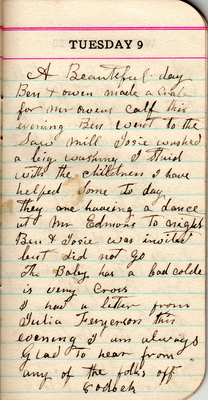 TUESDAY 9
A Beautiful day
Ben & owen made a
for Mr owens calf this
evening Ben went to the
Saw Mill Josie washed
a big washing I staid
with the childrens I have
helped Some to day
they are haveing a dance
at Mr Edmons to night
Ben & Josie was invited
but did not go
The Baby has a bad colde
is very Cross
I had a letter from
Julia Feryerson this
evening I am always
Glad to hear from
any of the folks off